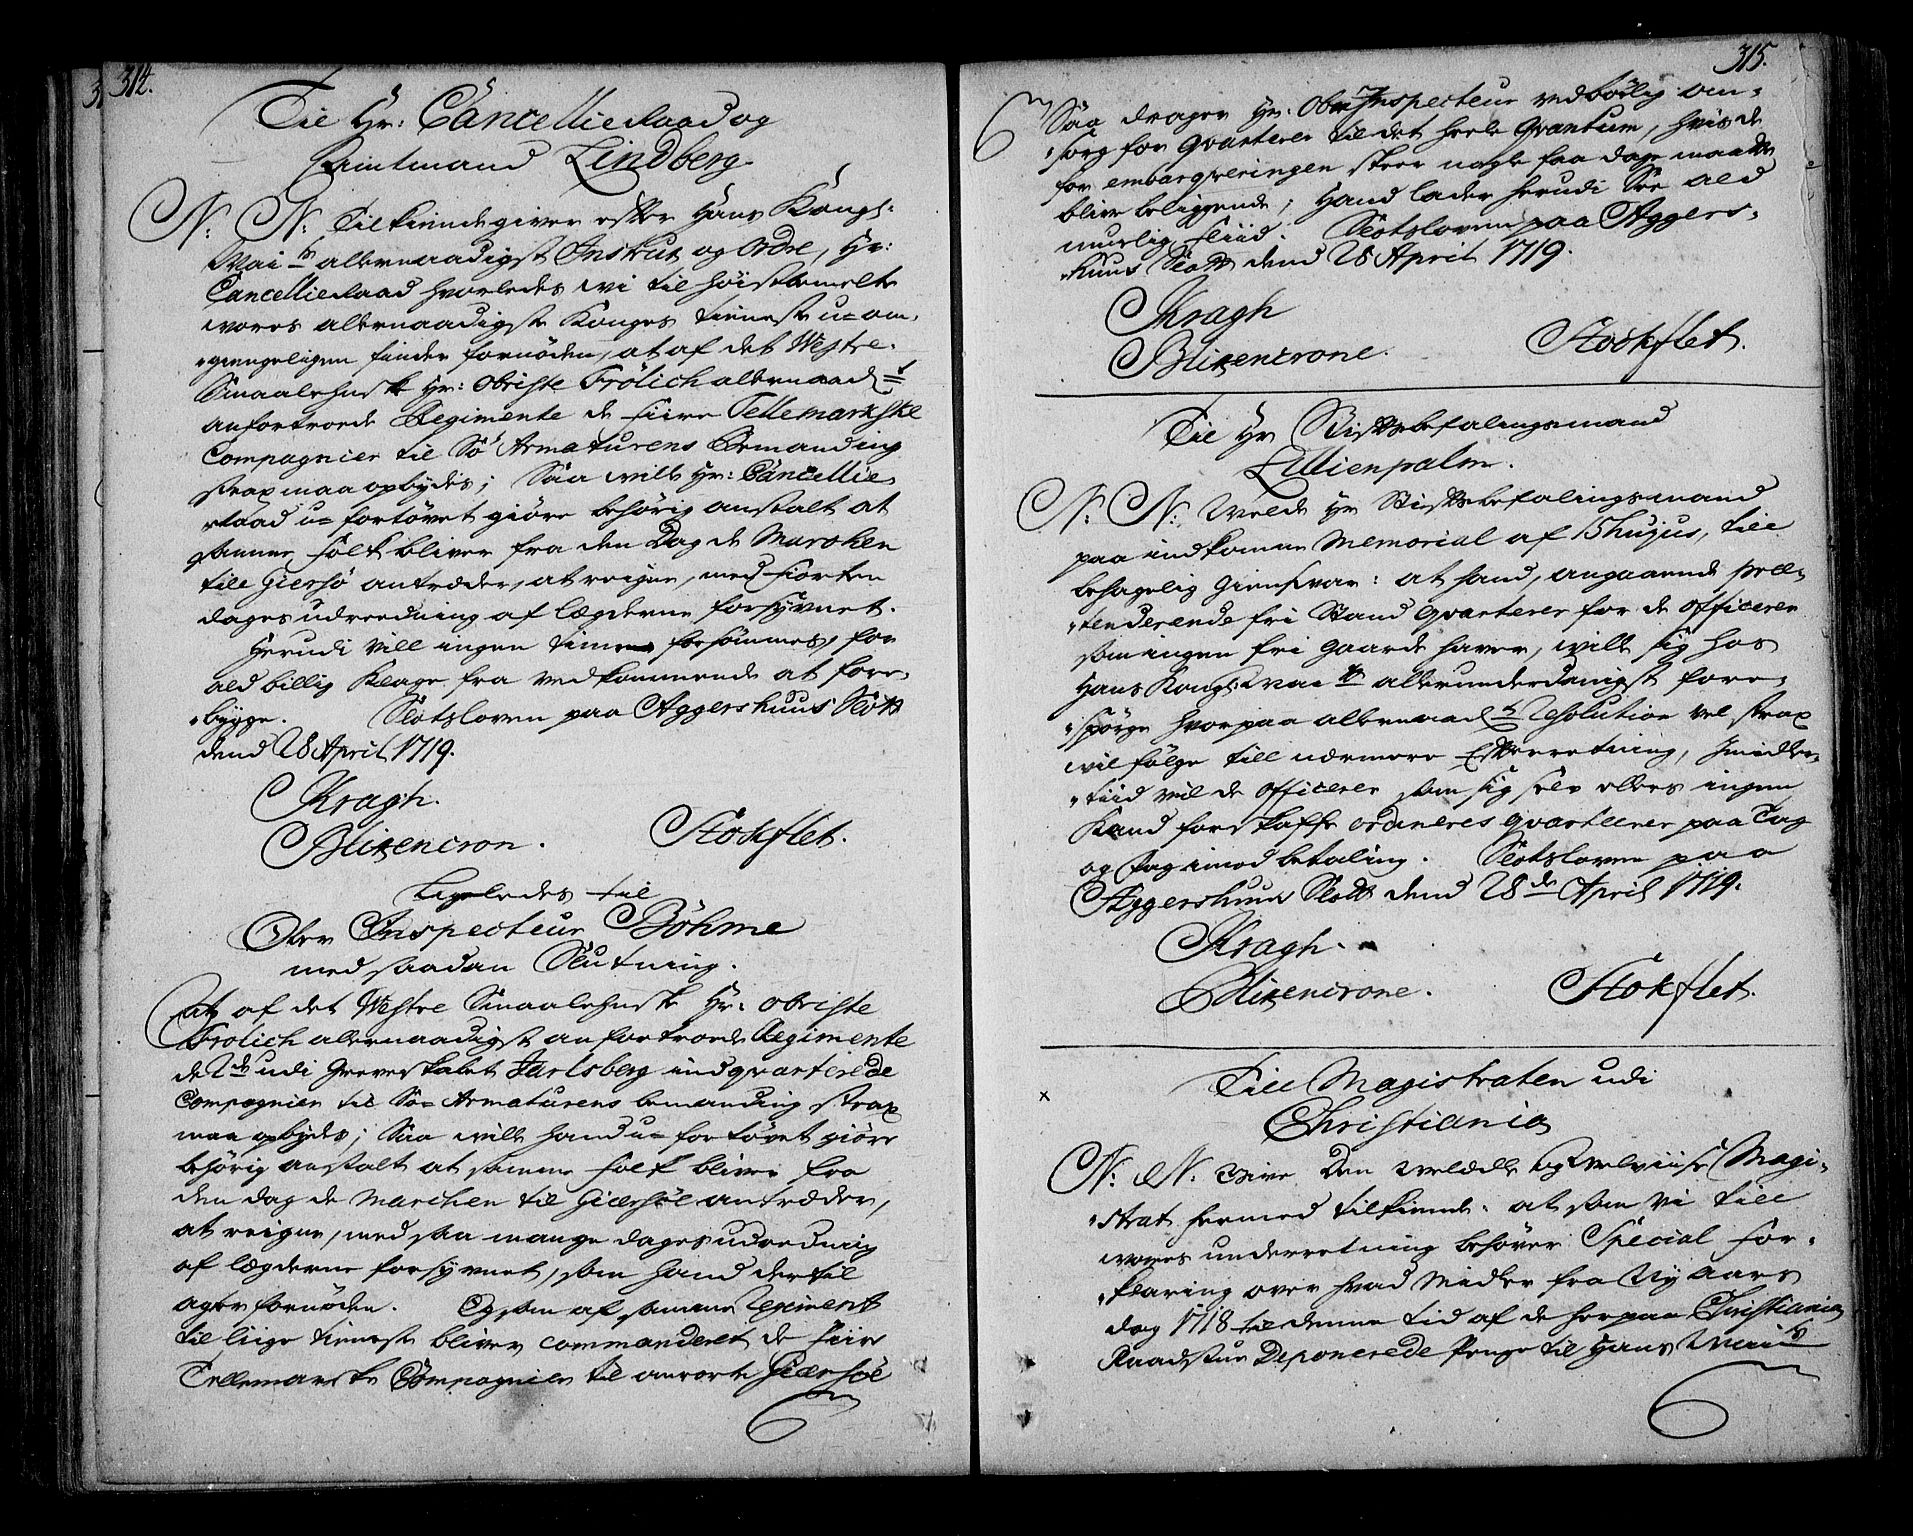 314.
Til Hr: Cancellie Raad og
Amtmand Lindberg
N: N: Tilkiende giver efter Hans Kongl:
May:ts allernaadigst Instrux og Ordre, Hr:
Cancellie Raad hvorledes wi til høistbemelte
wores allernaadigste Konges tieneste u-om-
giengeligen finder fornøden, at af det Westre-
Smaalehnske Hr: Obriste Frölich allernaad:
anfortroede Regimente de fiire Tellemarkske
Compagnier til Sö Armaturens Bemanding
strax maa opbydes; Saa wille Hr: Cancellie
Raad u-fortövet giöre behörig anstalt at
samme folk bliver fra den Dag de Marchen
till Giersö antræder, at reigne, med fiorten
dages udreedning af lægderne forsyvnet.
Herudi vill ingen tiime forsömmes, for
ald billig Klage fra vedkommende at fore-
bygge. Slotsloven paa Aggershuus Slott
dend 28 April 1719.
Kragh.
Blixencron. Stokflet.
Ligeledes til
Ober Inspecteur Böhme
med saadan Slutning.
At af det Westre Smaalehnske Hr: Obriste
Frolich allernaadigst anfortroede Regimente
de 2de udi Grevskabet Jarlsberg indqvarterede
Compagnier til Söe-Armaturens bemanding strax
maa opbydes; Saa wille hand u-fortövet giöre
behörig anstalt at samme folk bliver fra
den dag de Marchen til Giersöe antræder,
at reigne, med saa mange dages udredning
af lægderne forsyvnet, som hand dertil
agter fornöden. Og som af samme Regiment
til liige tieneste bliver commanderet de fiire
Tellemarske Compagnier til anrorte Giersöe
315.
Saa drager Hr: Ober Inspecteur vedbörlig om-
sorg for Qvarterer til det heele Qvantum, hvis de
for embarqveringen skeer nogle faa dage maatte
blive beliggende; Hand lader herudi See ald
muelig fliid. Slotsloven paa Aggers-
huus Slott dend 28 April 1719.
Kragh
Blixencrone. Stockflet.
Til Hr Stiftsbefalingsmand
Lillienpalm.
N: N: Melde Hr Stiftsbefalingsmand
paa indkomne Memorial af 15 hujus, till
behagelig Giensvar: at hand, angaaende præ-
tenderende fri Stand Qvarterer for de Officerer
som ingen fri Gaarde haver, wille sig hos
Hans Kongl: May:ts allerunderdanigst fore-
spörge hvorpaa allernaad:st Resolution vel strax
vil fölge till nærmere Efterretning, Imidler-
tiid vil de Officerer som sig selv ellers ingen
Kand forskaffe ordineres Qvarteerer paa Tag
og fag imod betaling. Slotsloven paa
Aggershuus Slott dend 28de April 1719.
Kragh.
Blixencrone. Stokflet.
Till Magistraten udi
Christiania
N: N: Give Den welædle og Velviise Magi-
strat hermed tilkiende, at som vi till
wores underretning behöver Special For-
klaring over hvad Midler fra Nyaars
dag 1718 til denne tid af de her paa Christiania
Raadstue Deponerede Penge til Hans May:ts